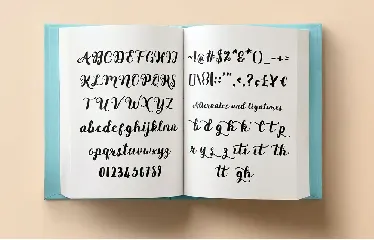 ABCDEFGHIJ
KLMNOPQRS
TUVWXYZ
abcdefghijklmn
opqrstuvwxyz
0123456789
~!@#$%^&*()_-+=
[]\{}|:;'",<.>?¢£¥€
Alternates and Ligatures
b d g h k l t p
r y s z th it th
tt gh